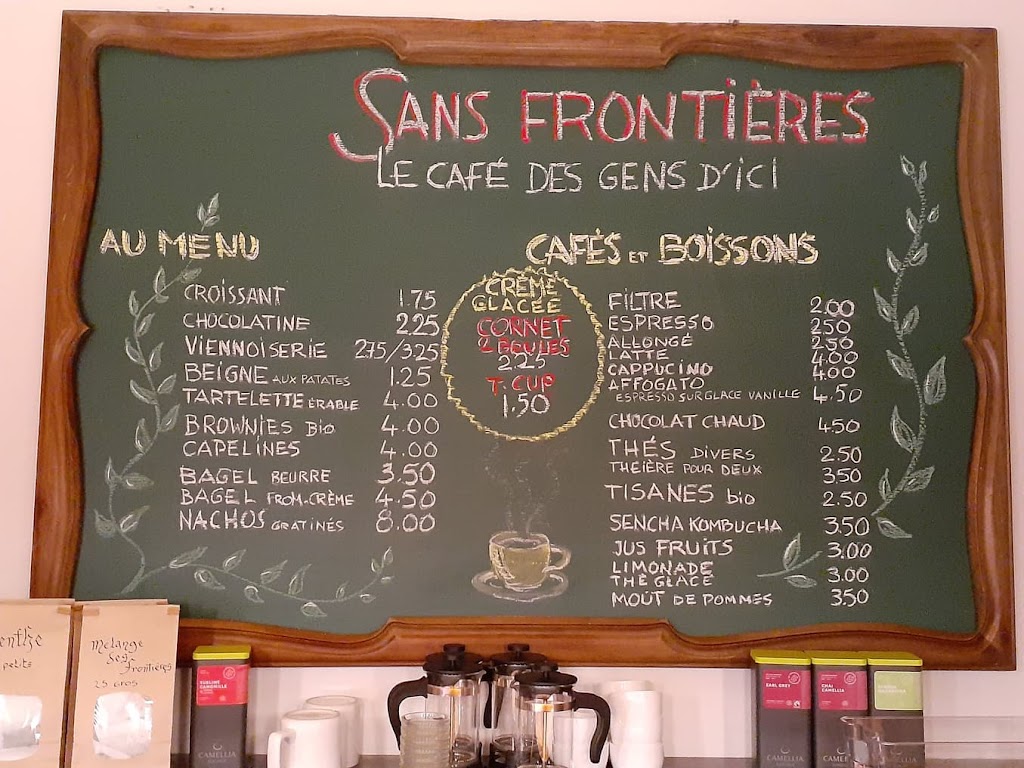 SANS FRONTIÈRES
LE CAFÉ DES GENS D'ICI
AU MENU
CROISSANT 1.75
CHOCOLATINE 2.25
VIENNOISERIE 2.75/3.25
BEIGNE AUX PATATES 1.25
TARTELETTE ÉRABLE 4.00
BROWNIES BIO 4.00
CAPELINES 4.00
BAGEL BEURRE 3.50
BAGEL FROM.CRÈME 4.50
NACHOS GRATINÉS 8.00
CRÈME
GLACÉE
CORNET
2 BOULES
2.25
T. CUP
1.50
CAFÉS ET BOISSONS
FILTRE 2.00
ESPRESSO 2.50
ALLONGÉ 2.50
LATTE 4.00
CAPPUCINO 4.00
AFFOGATO
ESPRESSO SUR GLACE VANILLE 4.50
CHOCOLAT CHAUD 4.50
THÉS DIVERS 2.50
THEIÈRE POUR DEUX 3.50
TISANES bio 2.50
SENCHA KOMBUCHA 3.50
JUS FRUITS 3.00
LIMONADE
THÉ GLACÉ 3.00
MOÛT DE POMMES 3.50
petits
Mélange
des
Frontières
25 gros
SUBLIME
CAMOMILLE
CAMELLIA
EARL GREY
CHAI
CAMELLIA